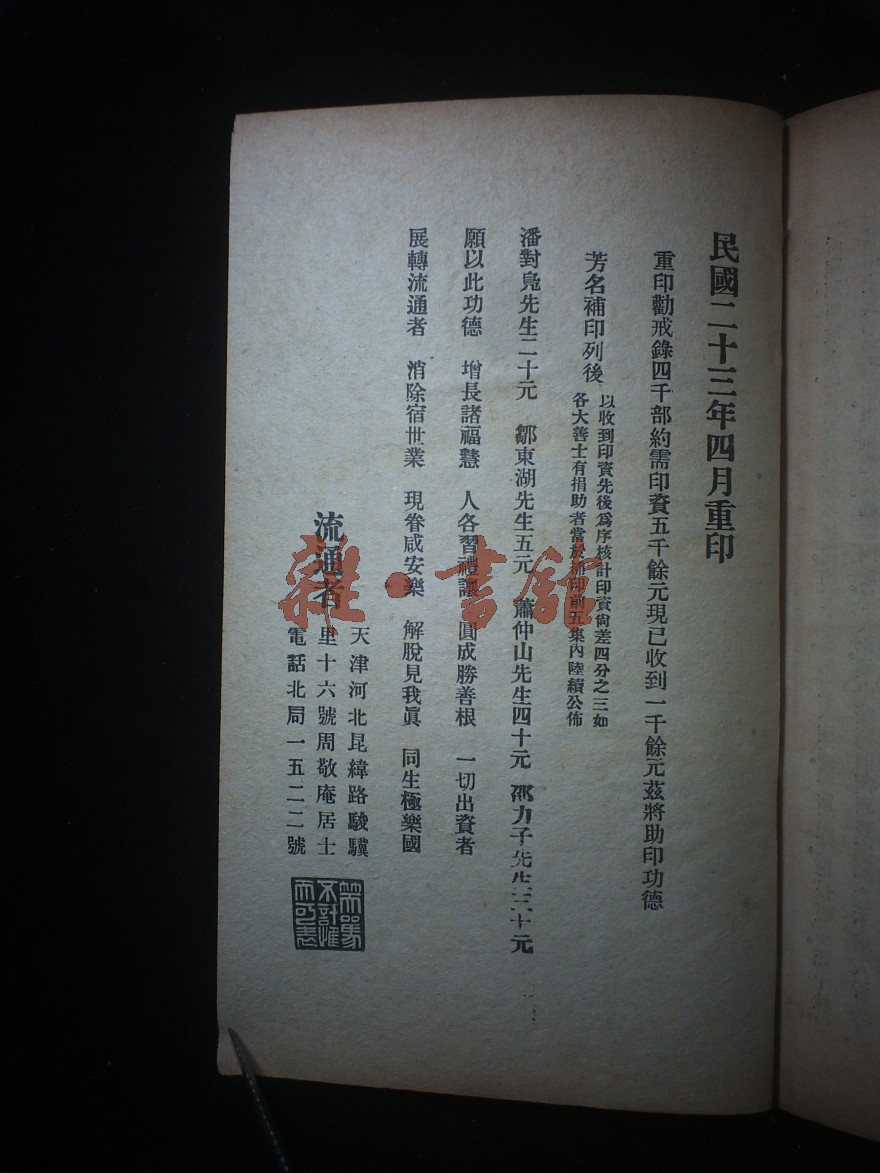 民國二十三年四月重印
重印勸戒錄四千部約需印資五千餘元現已收到一千餘元茲將助印功德
芳名補印列後
以收到印資先後爲序核計印資尙差四分之三如
各大善士有捐助者當於補印前五集內陸續公佈
潘對鳧先生二十元 鄒東湖先生五元 蕭仲山先生四十元 邵力子先生二十元
願以此功德 增長諸福慧 人各習禮讓 圓成勝善根 一切出資者
展轉流通者 消除宿世業 現眷咸安樂 解脫見我眞 同生極樂國
流通者
天津河北昆緯路駿驥
里十六號周敬庵居士
電話北局一五二二號
雜·書館